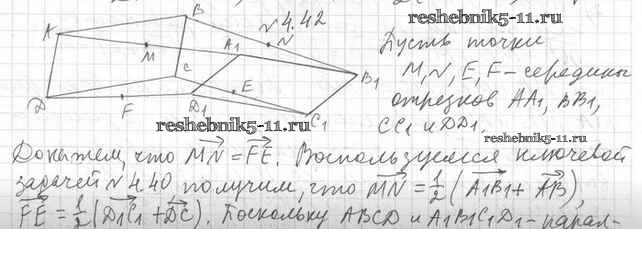 № 4.42
reshebnik5-11.ru
Пусть точки
M, N, E, F – середины
отрезков AA₁, BB₁,
CC₁ и DD₁.
A
B
A₁
N
M
B₁
C
E
D
F
D₁
C₁
reshebnik5-11.ru
reshebnik5-11.ru
Докажем, что MN = FE. Воспользуемся ключевой
задачей №4.40 получим, что MN = 1/2 (A₁B₁ + AB),
FE = 1/2 (D₁C₁ + DC). Поскольку ABCD и A₁B₁C₁D₁ – парал-